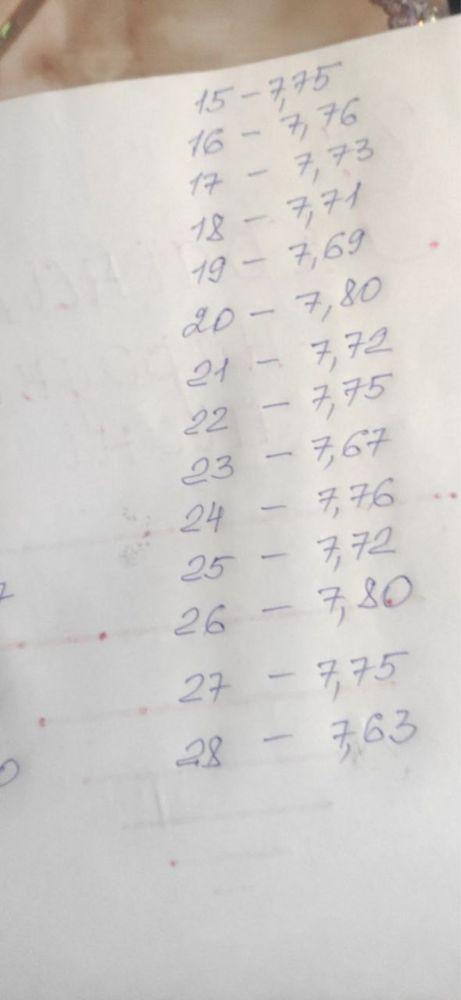 15 - 7,75
16 - 7,76
17 - 7,73
18 - 7,71
19 - 7,69
20 - 7,80
21 - 7,72
22 - 7,75
23 - 7,67
24 - 7,76
25 - 7,72
26 - 7,80
27 - 7,75
28 - 7,63